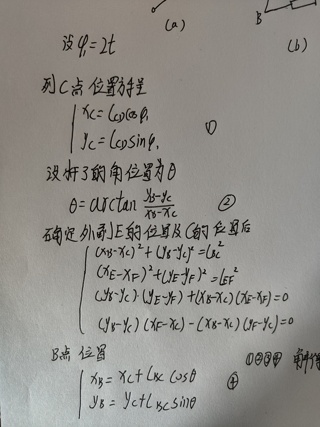 (a)
B
(b)
设 φ₁=2t
列C点位置方程
x_C = l_CD cosφ₁
y_C = l_CD sinφ₁ ①
设杆3的角位置为θ
θ = arctan (y_B-y_C)/(x_B-x_C) ②
确定外副E的位置及C的位置后
(x_B-x_C)²+(y_B-y_C)²=l_BC²
(x_E-x_F)²+(y_E-y_F)²=l_EF²
(y_B-y_C)·(y_E-y_F)+(x_B-x_C)(x_E-x_F)=0
(y_B-y_C)(x_F-x_C)-(x_B-x_C)(y_F-y_C)=0
B点位置 ①②③④
x_B = x_C+l_BC cosθ
y_B = y_C+l_BC sinθ ④